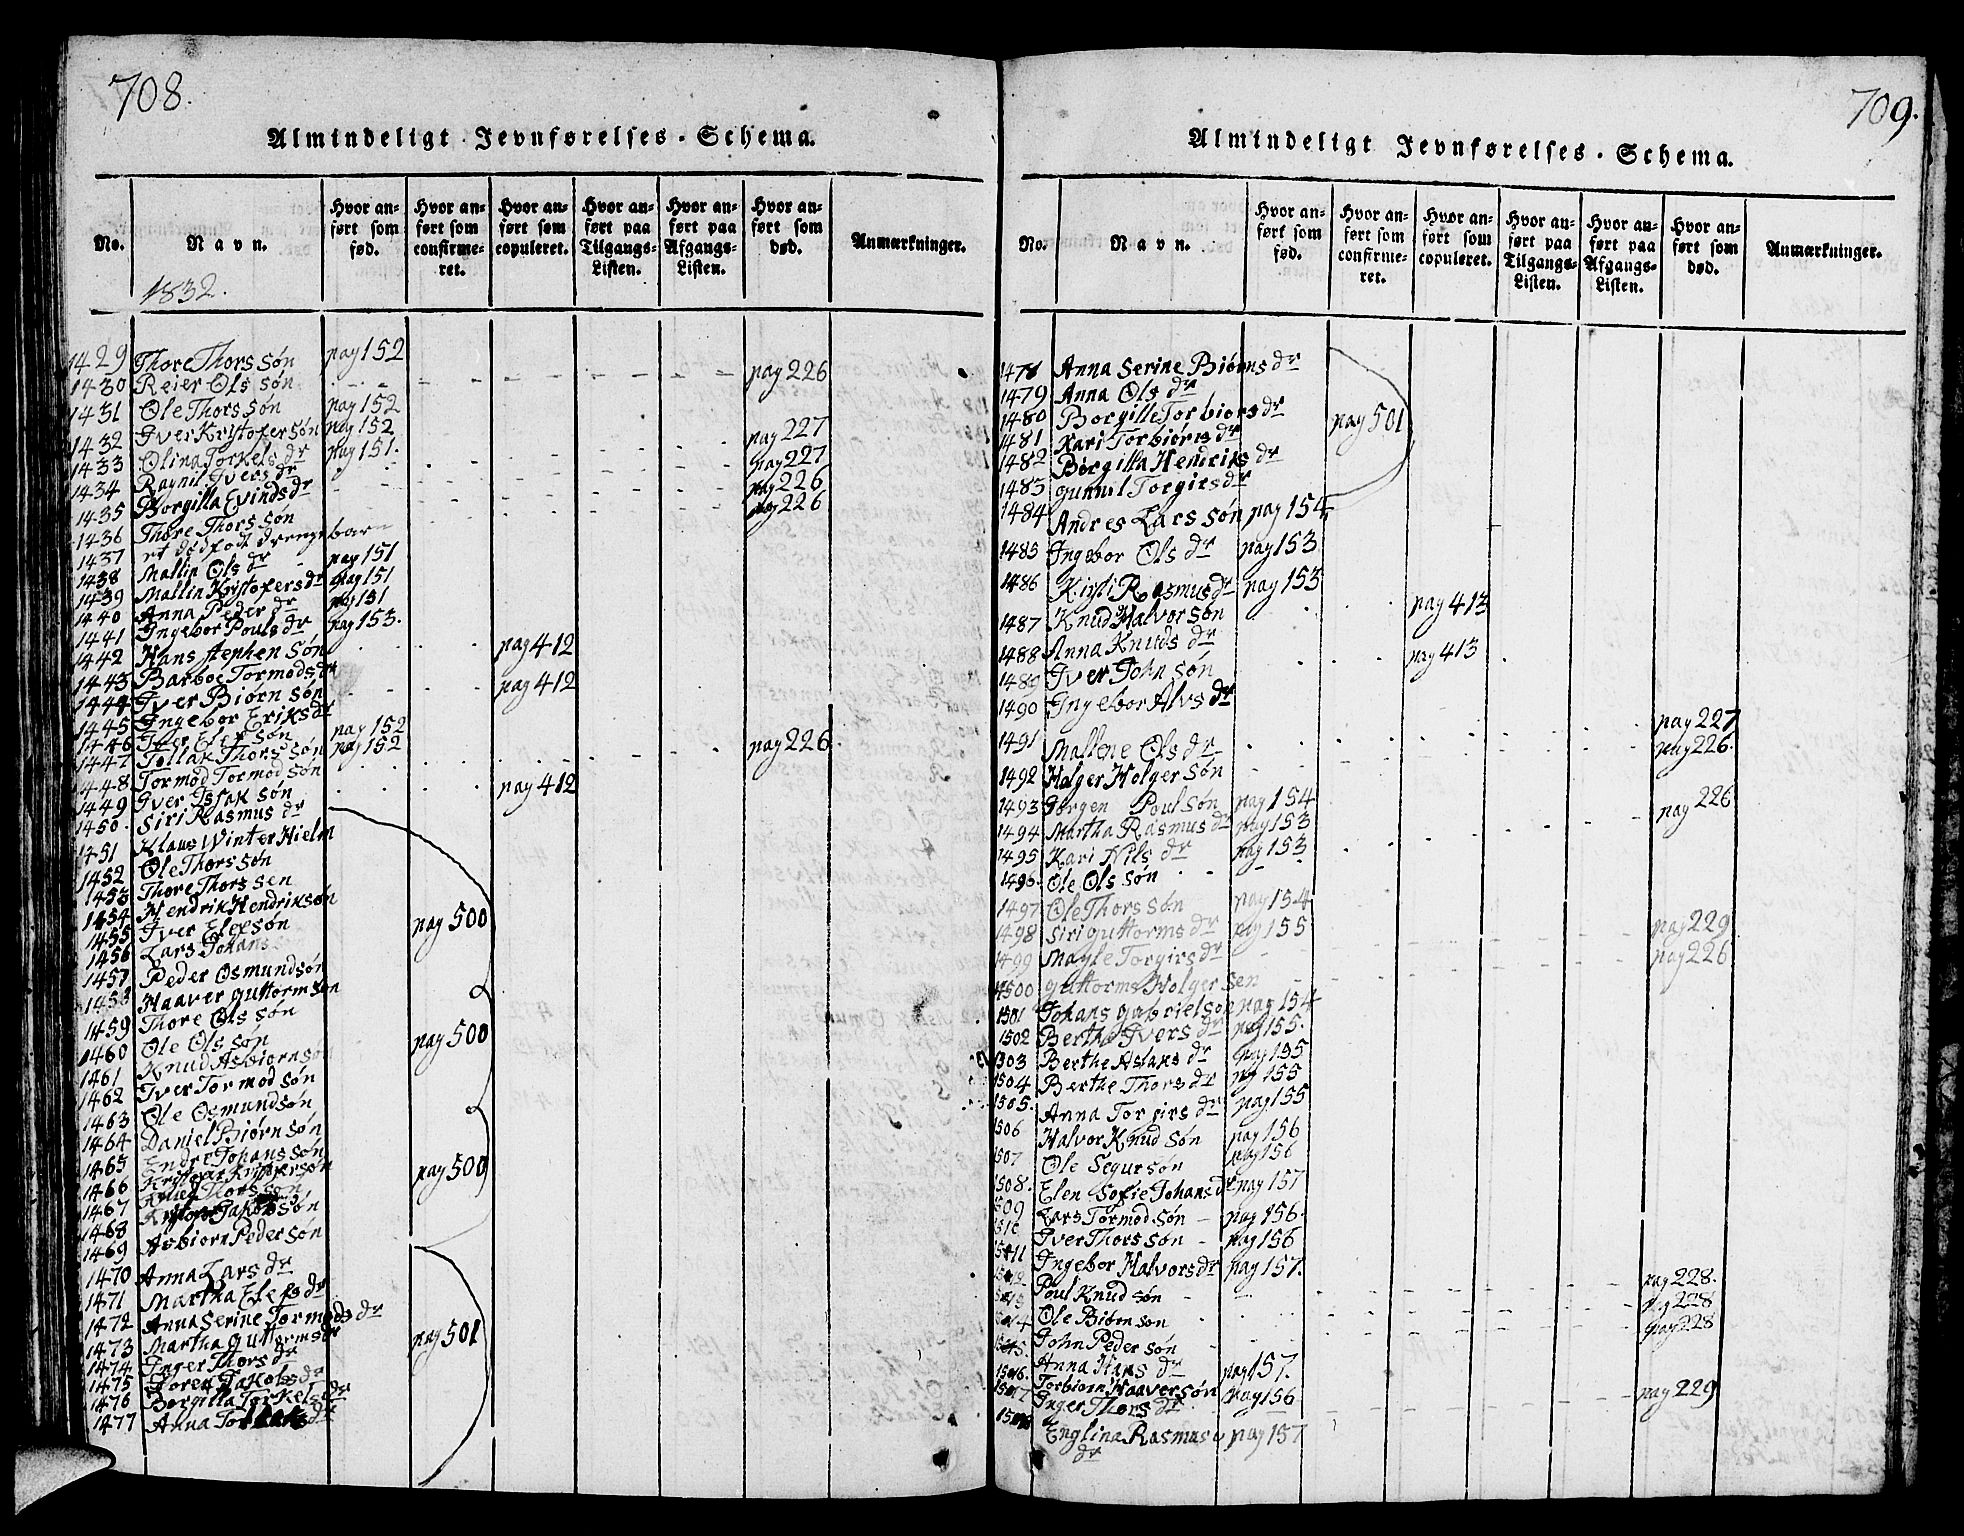 708.
Almindeligt Jevnførelses-Schema.
No.
Navn.
Hvor anført som fød.
Hvor anført som confirmeret.
Hvor anført som copuleret.
Hvor anført paa Tilgangs-Listen.
Hvor anført paa Afgangs-Listen.
Hvor anført som død.
Anmærkninger.
1832.
1429 Thore Thors søn pag 152
1430 Reier Ols søn pag 226
1431 Ole Thors søn pag 152
1432 Iver Kristofer søn pag 152
1433 Olina Torkels dr pag 151.
1434 Ragnil Ivers dr pag 227
1435 Borgilla Evinds dr pag 227
1436 Thore Thors søn pag 226
1437 et dødfødt drengebarn pag 226
1438 Mallin Ols dr pag 151
1439 Mallin Kristofers dr pag 151
1440 Anna Peder dr pag 151
1441 Ingebor Pouls dr pag 153.
1442 Hans stephen søn pag 412
1443 Barboe Tormods dr
1444 Iver Biørn søn pag 412
1445 Ingebor Eriks dr
1446 Iver Elef søn pag 152
1447 Tollak Thors søn pag 152
1448 Tormod Tormod søn pag 226.
1449 Iver Isak søn pag 412
1450. Siri Rasmus dr
1451 Klaus Winter Hielm
1452 Ole Thors søn
1453 Thore Thors sen
1454 Hendrik Hendriksøn
1455 Iver Elefsøn pag 500
1456 Lars Johans
1457 Peder Osmundsøn
1458 Haaver guttormsøn
1459 Thore Ols søn
1460 Ole Ols søn pag 500
1461 Knud Asbiørnsøn
1462 Iver Tormod søn
1463 Ole Osmundsøn
1464 Daniel Biørn søn
1465 Endre Johans søn
1466 Kristofersøn pag 500
1467 Thors søn
1468 Jakobsøn
1469 Asbiørn Peder søn
1470 Anna Lars dr
1471 Martha Elefs dr
1472 Anna Serine Tormods dr
1473 Martha guttorms dr pag 501
1474 Inger Thors dr
1475 Jakobs dr
1476 Borgilla Torkels dr
1477 Anna dr
709.
Almindeligt Jevnførelses-Schema.
No.
Navn.
Hvor anført som fød.
Hvor anført som confirmeret.
Hvor anført som copuleret.
Hvor anført paa Tilgangs-Listen.
Hvor anført paa Afgangs-Listen.
Hvor anført som død.
Anmærkninger.
1478 Anna Serine Biørns dr
1479 Anna Ols dr
1480 Borgille Torbiørs dr pag 501
1481 Kari Torbiørns dr
1482 Børgilla Hendriks dr
1483 gunnil Torgirs dr
1484 Andres Lars søn pag 154
1485 Ingebor Ols dr pag 153
1486 Kirsti Rasmus dr pag 153
1487 Knud Halvor søn pag 413
1488 Anna Knuds dr
1489 Iver John søn pag 413
1490 Ingebor Alvs dr
1491 Mallene Ols dr pag 227
1492 Holger Holger søn pag 226.
1493 Jørgen Poul søn pag 154
1494 Martha Rasmus dr pag 153
1495 Kari Nils dr pag 153
1496. Ole Ols søn pag 226
1497 Ole Thors søn pag 154
1498 Siri guttorms dr pag 155
1499 Mayle Torgirs dr pag 229
1500 guttorms Holger sen pag 226
1501 Johans gabrielson pag 154
1502 Berthe Ivers dr pag 155.
1503 Berthe Aslaks dr pag 155
1504 Berthe Thors dr pag 155
1505. Anna Torgirs dr pag 155
1506 Halvor Knud søn pag 156
1507 Ole Segursøn pag 156
1508. Elen Sofie Johans dr pag 157
1509 Lars Tormod søn pag 156.
1510 Iver Thors søn pag 156
1511 Ingebor Halvors dr pag 157.
Poul Knud søn pag 228.
Ole Biørn søn pag 228
John Peder søn pag 228
Anna Hans dr pag 157.
Torbiørn Haaver søn pag 156
Inger Thors dr pag 229
Englina Rasmus dr pag 157